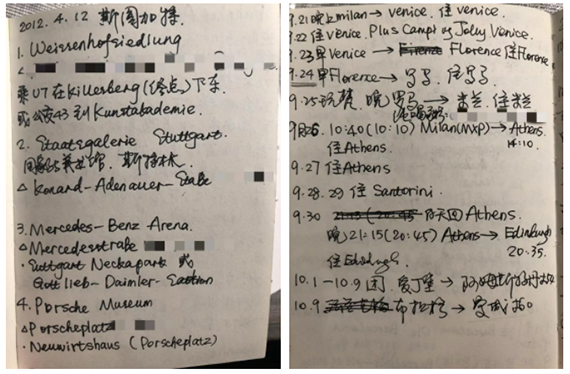 2012.4.12 斯图加特
1. Weissenhofsiedlung
乘U7在Killesberg(终点)下车
或公交43到Kunstakademie.
2. Staatsgalerie Stuttgart.
斯特林
△ Konard-Adenauer-Staße
3. Mercedes-Benz Arena.
△ Mercedesstraße
· Suttgart Neckapark 或
Gottlieb-Daimler-Sastion
4. Porsche Museum
△ Porscheplatz
· Neuwirtshaus (Porscheplatz)
9.21 晚上milan→ venice. 住 venice.
9.22 住venice. Plus Camp Jolly Venice.
9.23早Venice → Florence 住Florence
9.24早Florence→ 罗马. 住罗马
9.25 晚 罗马 → 米兰. 住米兰
9.26. 10:40(10:10) Milan(MXP)→ Athens.
住Athens. 14:10.
9.27 住Athens
9.28.29 住 Santorini.
9.30 回Athens.
晚21:15(20:45) Athens→ Edinburgh
20:35.
住Edinburgh.
10.1-10.9 爱丁堡→
10.9 布拉格→